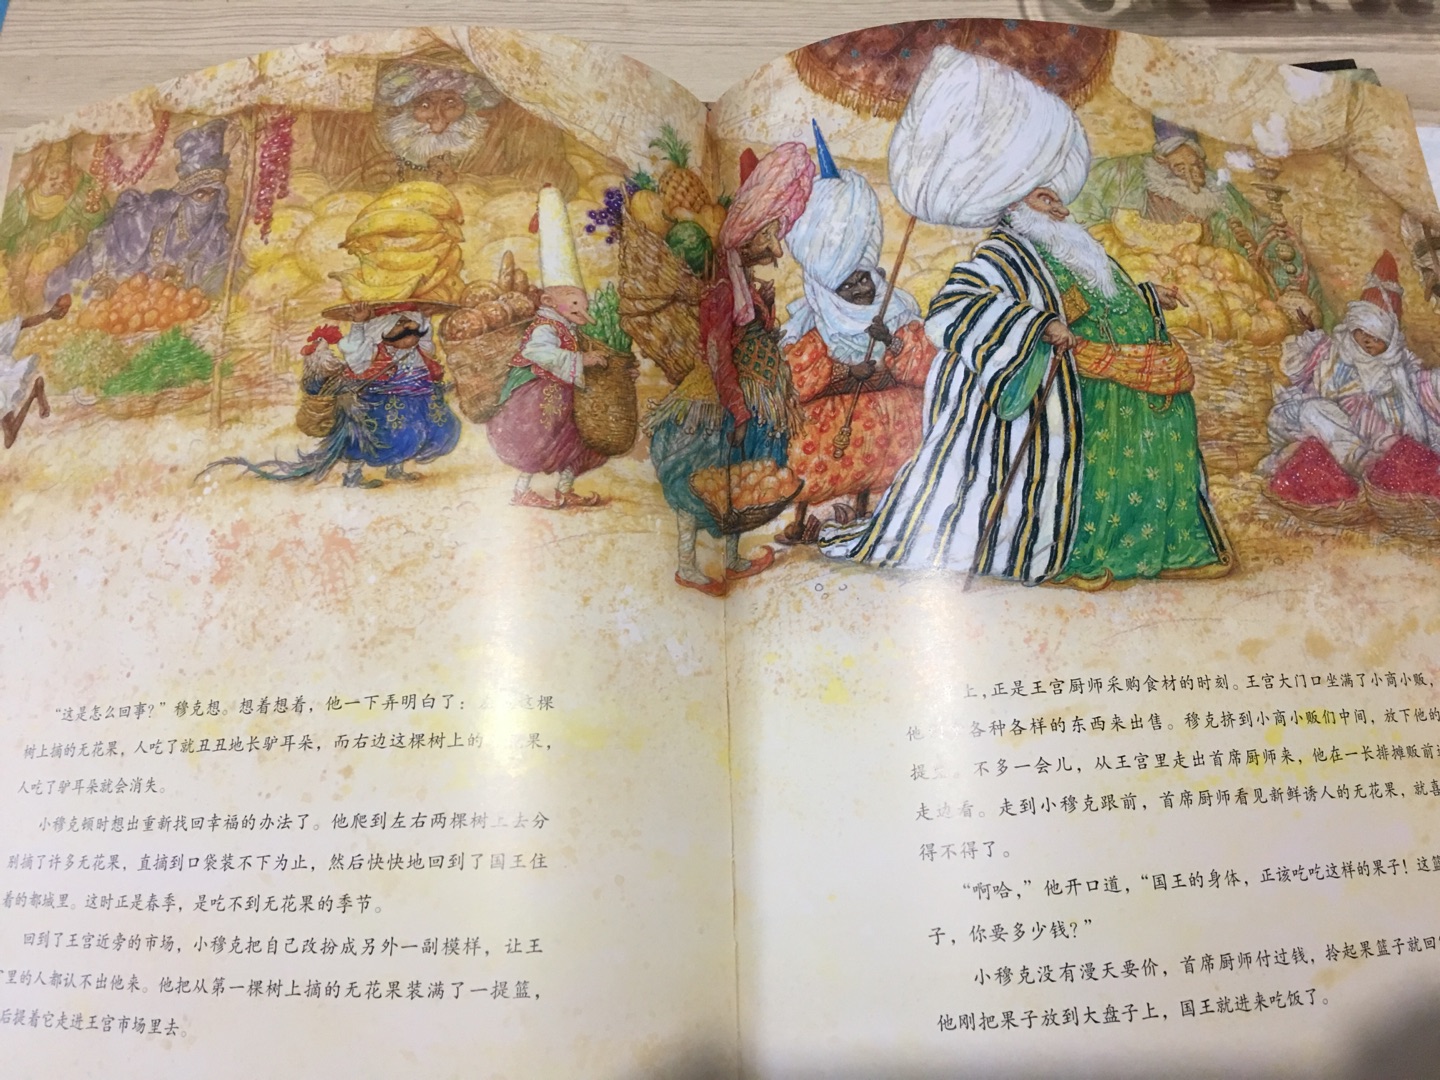 “这是怎么回事？”穆克想。想着想着，他一下弄明白了：这棵
树上摘的无花果，人吃了就丑丑地长驴耳朵，而右边这棵树上的果，
人吃了驴耳朵就会消失。
小穆克顿时想出重新找回幸福的办法了。他爬到左右两棵树上去分
别摘了许多无花果，直摘到口袋装不下为止，然后快快地回到了国王住
着的都城里。这时正是春季，是吃不到无花果的季节。
回到了王宫近旁的市场，小穆克把自己改扮成另外一副模样，让王
里的人都认不出他来。他把从第一棵树上摘的无花果装满了一提篮，
后提着它走进王宫市场里去。
上，正是王宫厨师采购食材的时刻。王宫大门口坐满了小商小贩，
他各种各样的东西来出售。穆克挤到小商小贩们中间，放下他的
提。不多一会儿，从王宫里走出首席厨师来，他在一长排摊贩前
走边看。走到小穆克跟前，首席厨师看见新鲜诱人的无花果，就喜
得不得了。
“啊哈，”他开口道，“国王的身体，正该吃吃这样的果子！这篮
子，你要多少钱？”
小穆克没有漫天要价，首席厨师付过钱，拎起果篮子就回
他刚把果子放到大盘子上，国王就进来吃饭了。